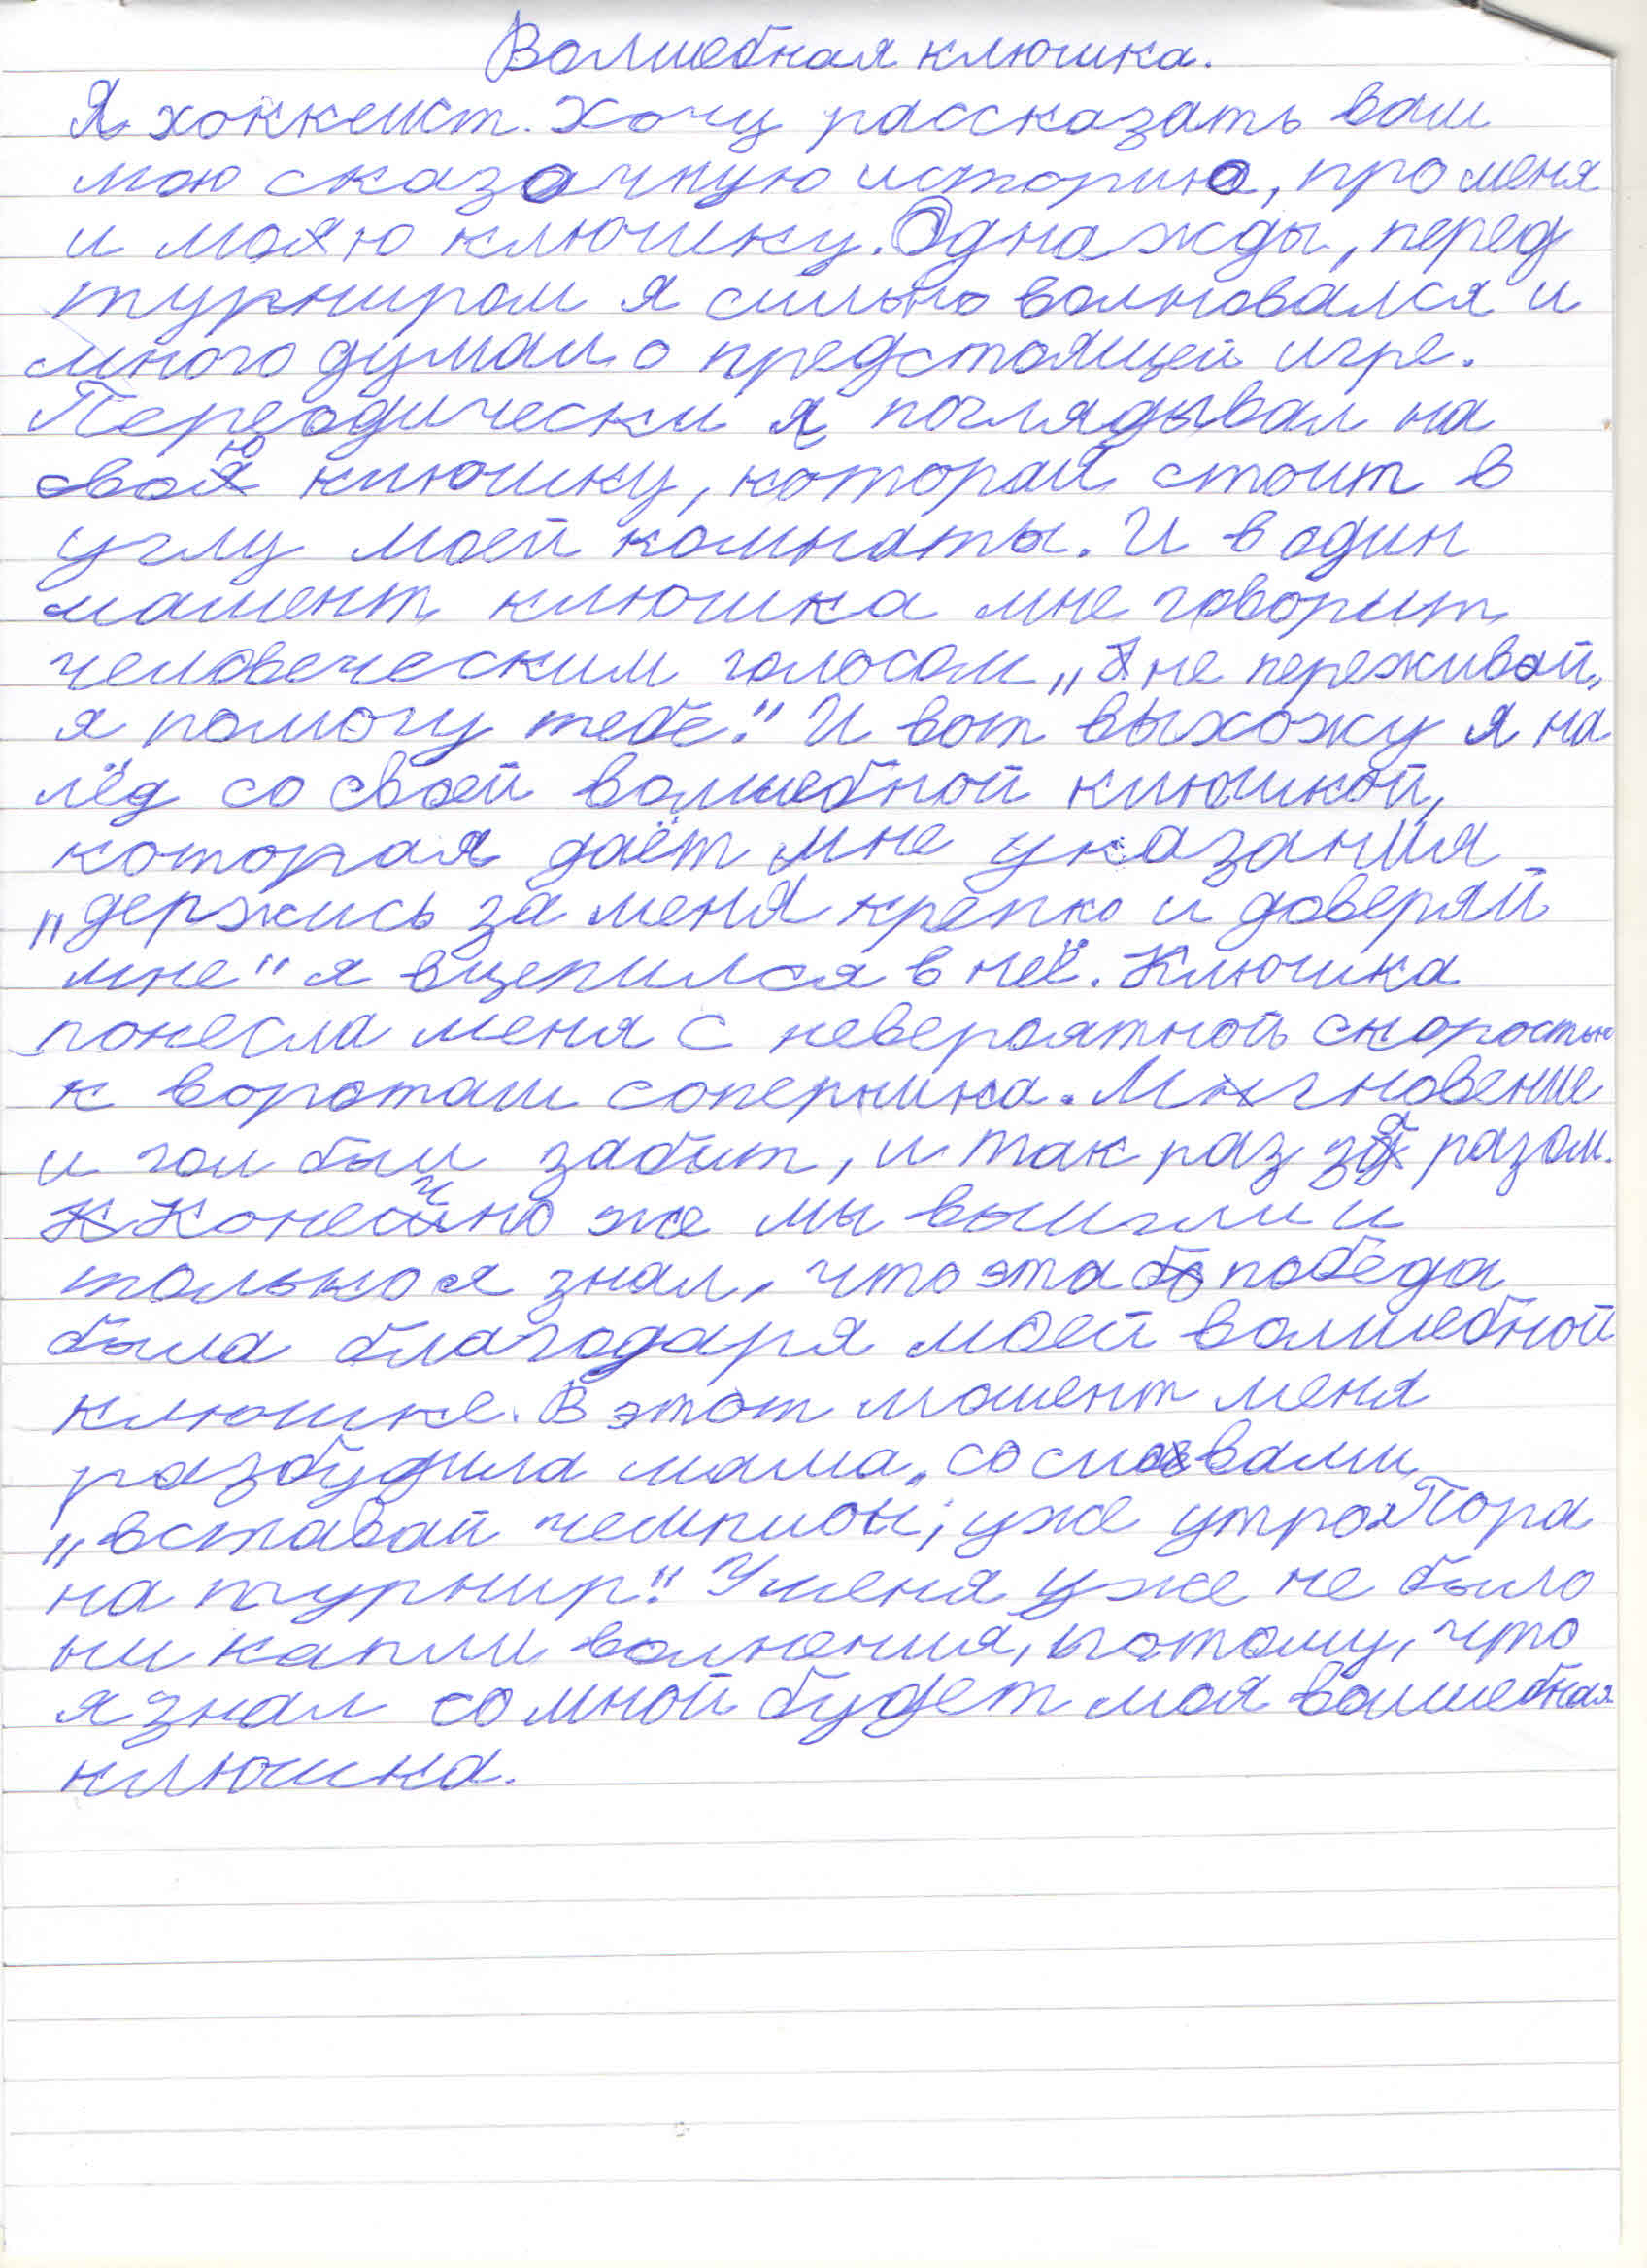 Волшебная клюшка.
Я хоккеист. Хочу рассказать вам
мою сказочную историю, про меня
и мою клюшку. Однажды, перед
турниром я сильно волновался и
много думал о предстоящей игре.
Переодически я поглядывал на
свою клюшку, которая стоит в
углу моей комнаты. И в один
момент клюшка мне говорит
человеческим голосом „не переживай,
я помогу тебе." И вот выхожу я на
лёд со своей волшебной клюшкой,
которая даёт мне указания
„держись за меня крепко и доверяй
мне" я вцепился в неё. Клюшка
понесла меня с невероятной скоростью
к воротам соперника. Мгновение
и гол был забит, и так раз за разом.
Конечно же мы выигли и
только я знал, что эта победа
была благодаря моей волшебной
клюшке. В этот момент меня
разбудила мама, со словами
„вставай чемпион, уже утро. Пора
на турнир." У меня уже не было
ни капли волнения, потому, что
я знал со мной будет моя волшебная
клюшка.